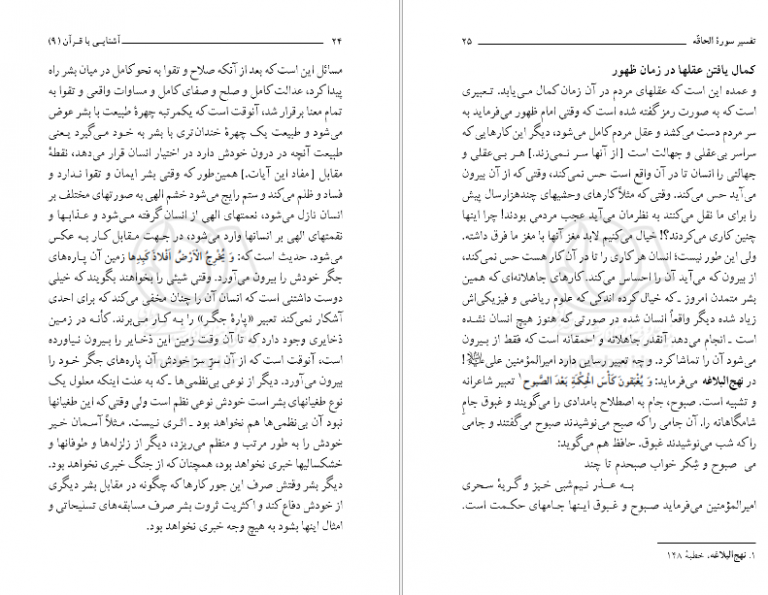 ۲۴ آشنایی با قرآن (۹)
مسائل این است که بعد از آنکه صلاح و تقوا به نحو کامل در میان بشر راه
پیدا کرد، عدالت کامل و صلح و صفای کامل و مساوات واقعی و تقوا به
تمام معنا برقرار شد، آنوقت است که یکمرتبه چهرهٔ طبیعت با بشر عوض
می‌شود و طبیعت یک چهرهٔ خندان‌تری با بشر به خود می‌گیرد یعنی
طبیعت آنچه در درون خودش دارد در اختیار انسان قرار می‌دهد، نقطهٔ
مقابل [مفاد این آیات.] همین‌طور که وقتی بشر ایمان و تقوا ندارد و
فساد و ظلم می‌کند و ستم رایج می‌شود خشم الهی به صورتهای مختلف بر
انسان نازل می‌شود، نعمتهای الهی از انسان گرفته می‌شود و عذابها و
نقمتهای الهی بر انسانها وارد می‌شود، در جهت مقابل کار به عکس
می‌شود. حدیث است که: وَ تُخْرِجُ الْاَرْضُ اَفْلاذَ کَبِدِها زمین آن پاره‌های
جگر خودش را بیرون می‌آورد. وقتی شیئی را بخواهند بگویند که خیلی
دوست داشتنی است که انسان آن را چنان مخفی می‌کند که برای احدی
آشکار نمی‌کند تعبیر «پارهٔ جگر» را به کار می‌برند. کأنه در زمین
ذخایری وجود دارد که تا آن وقت زمین این ذخایر را بیرون نیاورده
است، آنوقت است که از آن سرّ سرّ خودش آن پاره‌های جگر خود را
بیرون می‌آورد. دیگر از نوعی بی‌نظمی‌ها ـ که به علت اینکه معلول یک
نوع طغیانهای بشر است خودش نوعی نظم است ولی وقتی که این طغیانها
نبود آن بی‌نظمی‌ها هم نخواهد بود ـ اثری نیست. مثلاً آسمان خیر
خودش را به طور مرتب و منظم می‌ریزد، دیگر از زلزله‌ها و طوفانها و
خشکسالیها خبری نخواهد بود، همچنان که از جنگ خبری نخواهد بود.
دیگر بشر وقتش صرف این جور کارها که چگونه در مقابل بشر دیگری
از خودش دفاع کند و اکثریت ثروت بشر صرف مسابقه‌های تسلیحاتی و
امثال اینها بشود به هیچ وجه خبری نخواهد بود.
تفسیر سورهٔ الحاقّه ۲۵
کمال یافتن عقلها در زمان ظهور
و عمده این است که عقلهای مردم در آن زمان کمال می‌یابد. تعبیری
است که به صورت رمز گفته شده است که وقتی امام ظهور می‌فرماید به
سر مردم دست می‌کشد و عقل مردم کامل می‌شود، دیگر این کارهایی که
سراسر بی‌عقلی و جهالت است [از آنها سر نمی‌زند.] هر بی‌عقلی و
جهالتی را انسان تا در آن واقع است حس نمی‌کند، وقتی که از آن بیرون
می‌آید حس می‌کند. وقتی که مثلاً کارهای وحشیهای چندهزارسال پیش
را برای ما نقل می‌کنند به نظرمان می‌آید عجب مردمی بودند! چرا اینها
چنین کاری می‌کردند؟! خیال می‌کنیم لابد مغز آنها با مغز ما فرق داشته.
ولی این طور نیست؛ انسان هر کاری را تا در آن کار هست حس نمی‌کند،
از بیرون که می‌آید آن را احساس می‌کند. کارهای جاهلانه‌ای که همین
بشر متمدن امروز ـ که خیال کرده اندکی که علوم ریاضی و فیزیکی‌اش
زیاد شده دیگر واقعاً انسان شده در صورتی که هنوز هیچ انسان نشده
است ـ انجام می‌دهد آنقدر جاهلانه و احمقانه است که فقط از بیرون
می‌شود آن را تماشا کرد. و چه تعبیر رسایی دارد امیرالمؤمنین علی علیه‌السلام!
در نهج‌البلاغه می‌فرماید: وَ یُغْبَقونَ کَأْسَ الْحِکْمَةِ بَعْدَ الصَّبوحِ¹ تعبیر شاعرانه
و تشبیه است. صبوح، جام به اصطلاح بامدادی را می‌گویند و غبوق جامِ
شامگاهانه را. آن جامی را که صبح می‌نوشیدند صبوح می‌گفتند و جامی
را که شب می‌نوشیدند غبوق. حافظ هم می‌گوید:
می صبوح و شِکر خواب صبحدم تا چند
به عذر نیم‌شبی خیز و گریهٔ سحری
امیرالمؤمنین می‌فرماید صبوح و غبوق اینها جامهای حکمت است.
۱. نهج‌البلاغه، خطبهٔ ۱۴۸